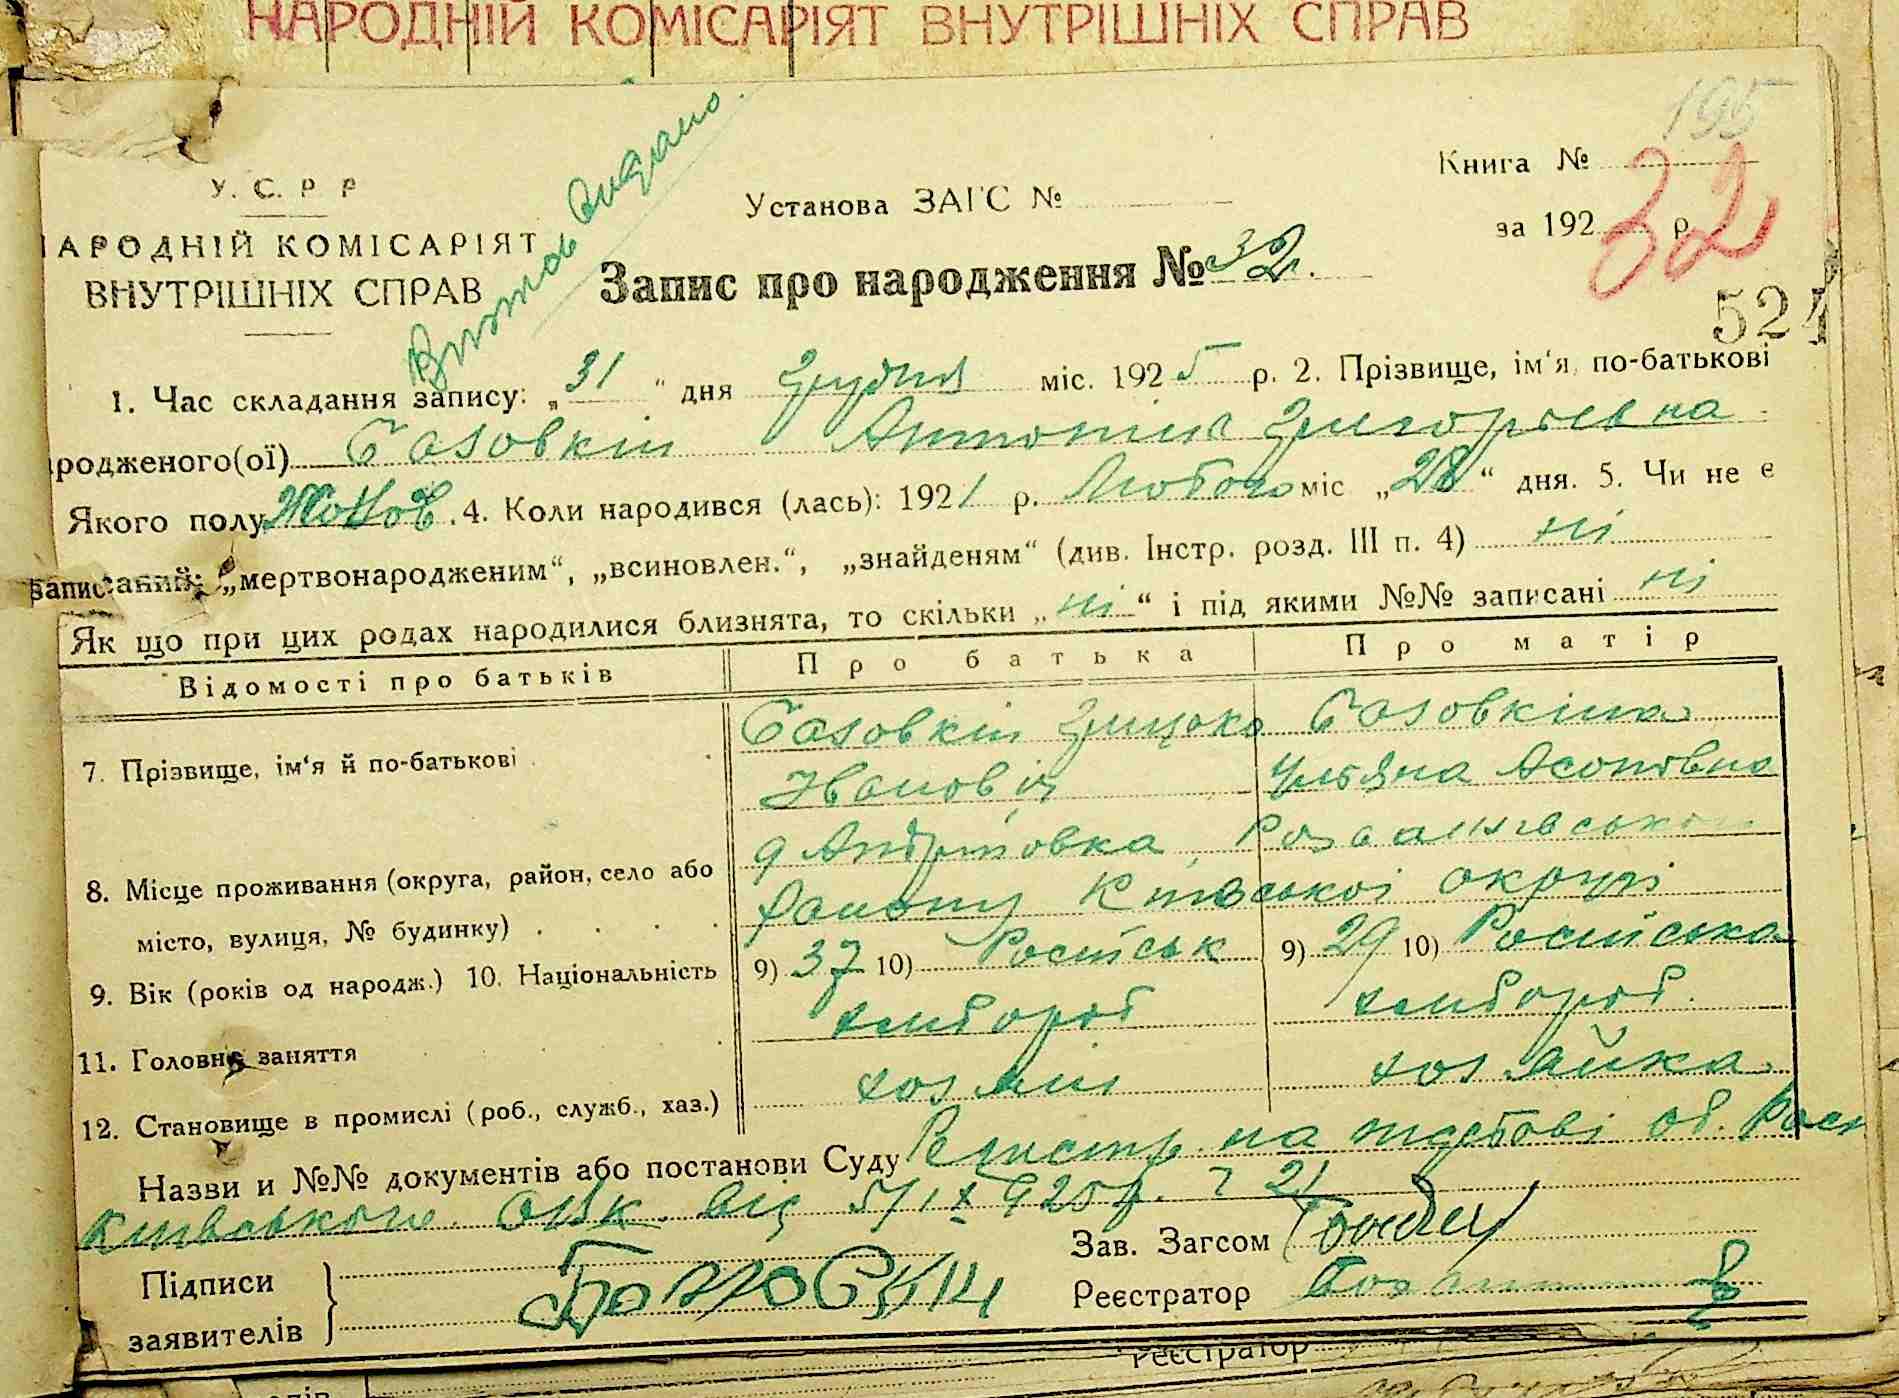 НАРОДНІЙ КОМІСАРІЯТ ВНУТРІШНІХ СПРАВ
195
У. С. Р Р
АРОДНІЙ КОМІСАРІЯТ
ВНУТРІШНІХ СПРАВ
Витяг видано.
Установа ЗАГС №
Книга №
за 192 р.
32
Запис про народження № 32.
524
1. Час складання запису: „31“ дня Грудня міс. 1925 р. 2. Прізвище, ім‘я, по-батькові
родженого(ої) Базовкін Антоніна Григорьевна
Якого полу Жіноч. 4. Коли народився (лась): 1921 р. Лютого міс „28“ дня. 5. Чи не є
записаний: „мертвонародженим“, „всиновлен.“, „знайденям“ (див. Інстр. розд. III п. 4) ні
Як що при цих родах народилися близнята, то скільки „ні“ і під якими №№ записані ні
Відомості про батьків Про батька Про матір
7. Прізвище, ім‘я й по-батькові
Базовкін Грицько Базовкіна
Иванович Ульяна
8. Місце проживання (округа, район, село або
місто, вулиця, № будинку)
Андріївка, Розважівського
району Київської округи
9. Вік (років од народж.) 10. Національність 9) 37 10) Російськ 9) 29 10) Російська
11. Головне заняття хлібороб хлібороб.
12. Становище в промислі (роб., служб., хаз.) хозяїн хозяйка
Назви и №№ документів або постанови Суду Реєстр. на підставі об.
Київського ОВК від 5/IX 925р. 21
Підписи
заявителів
Зав. Загсом
Реєстратор
Реєстратор